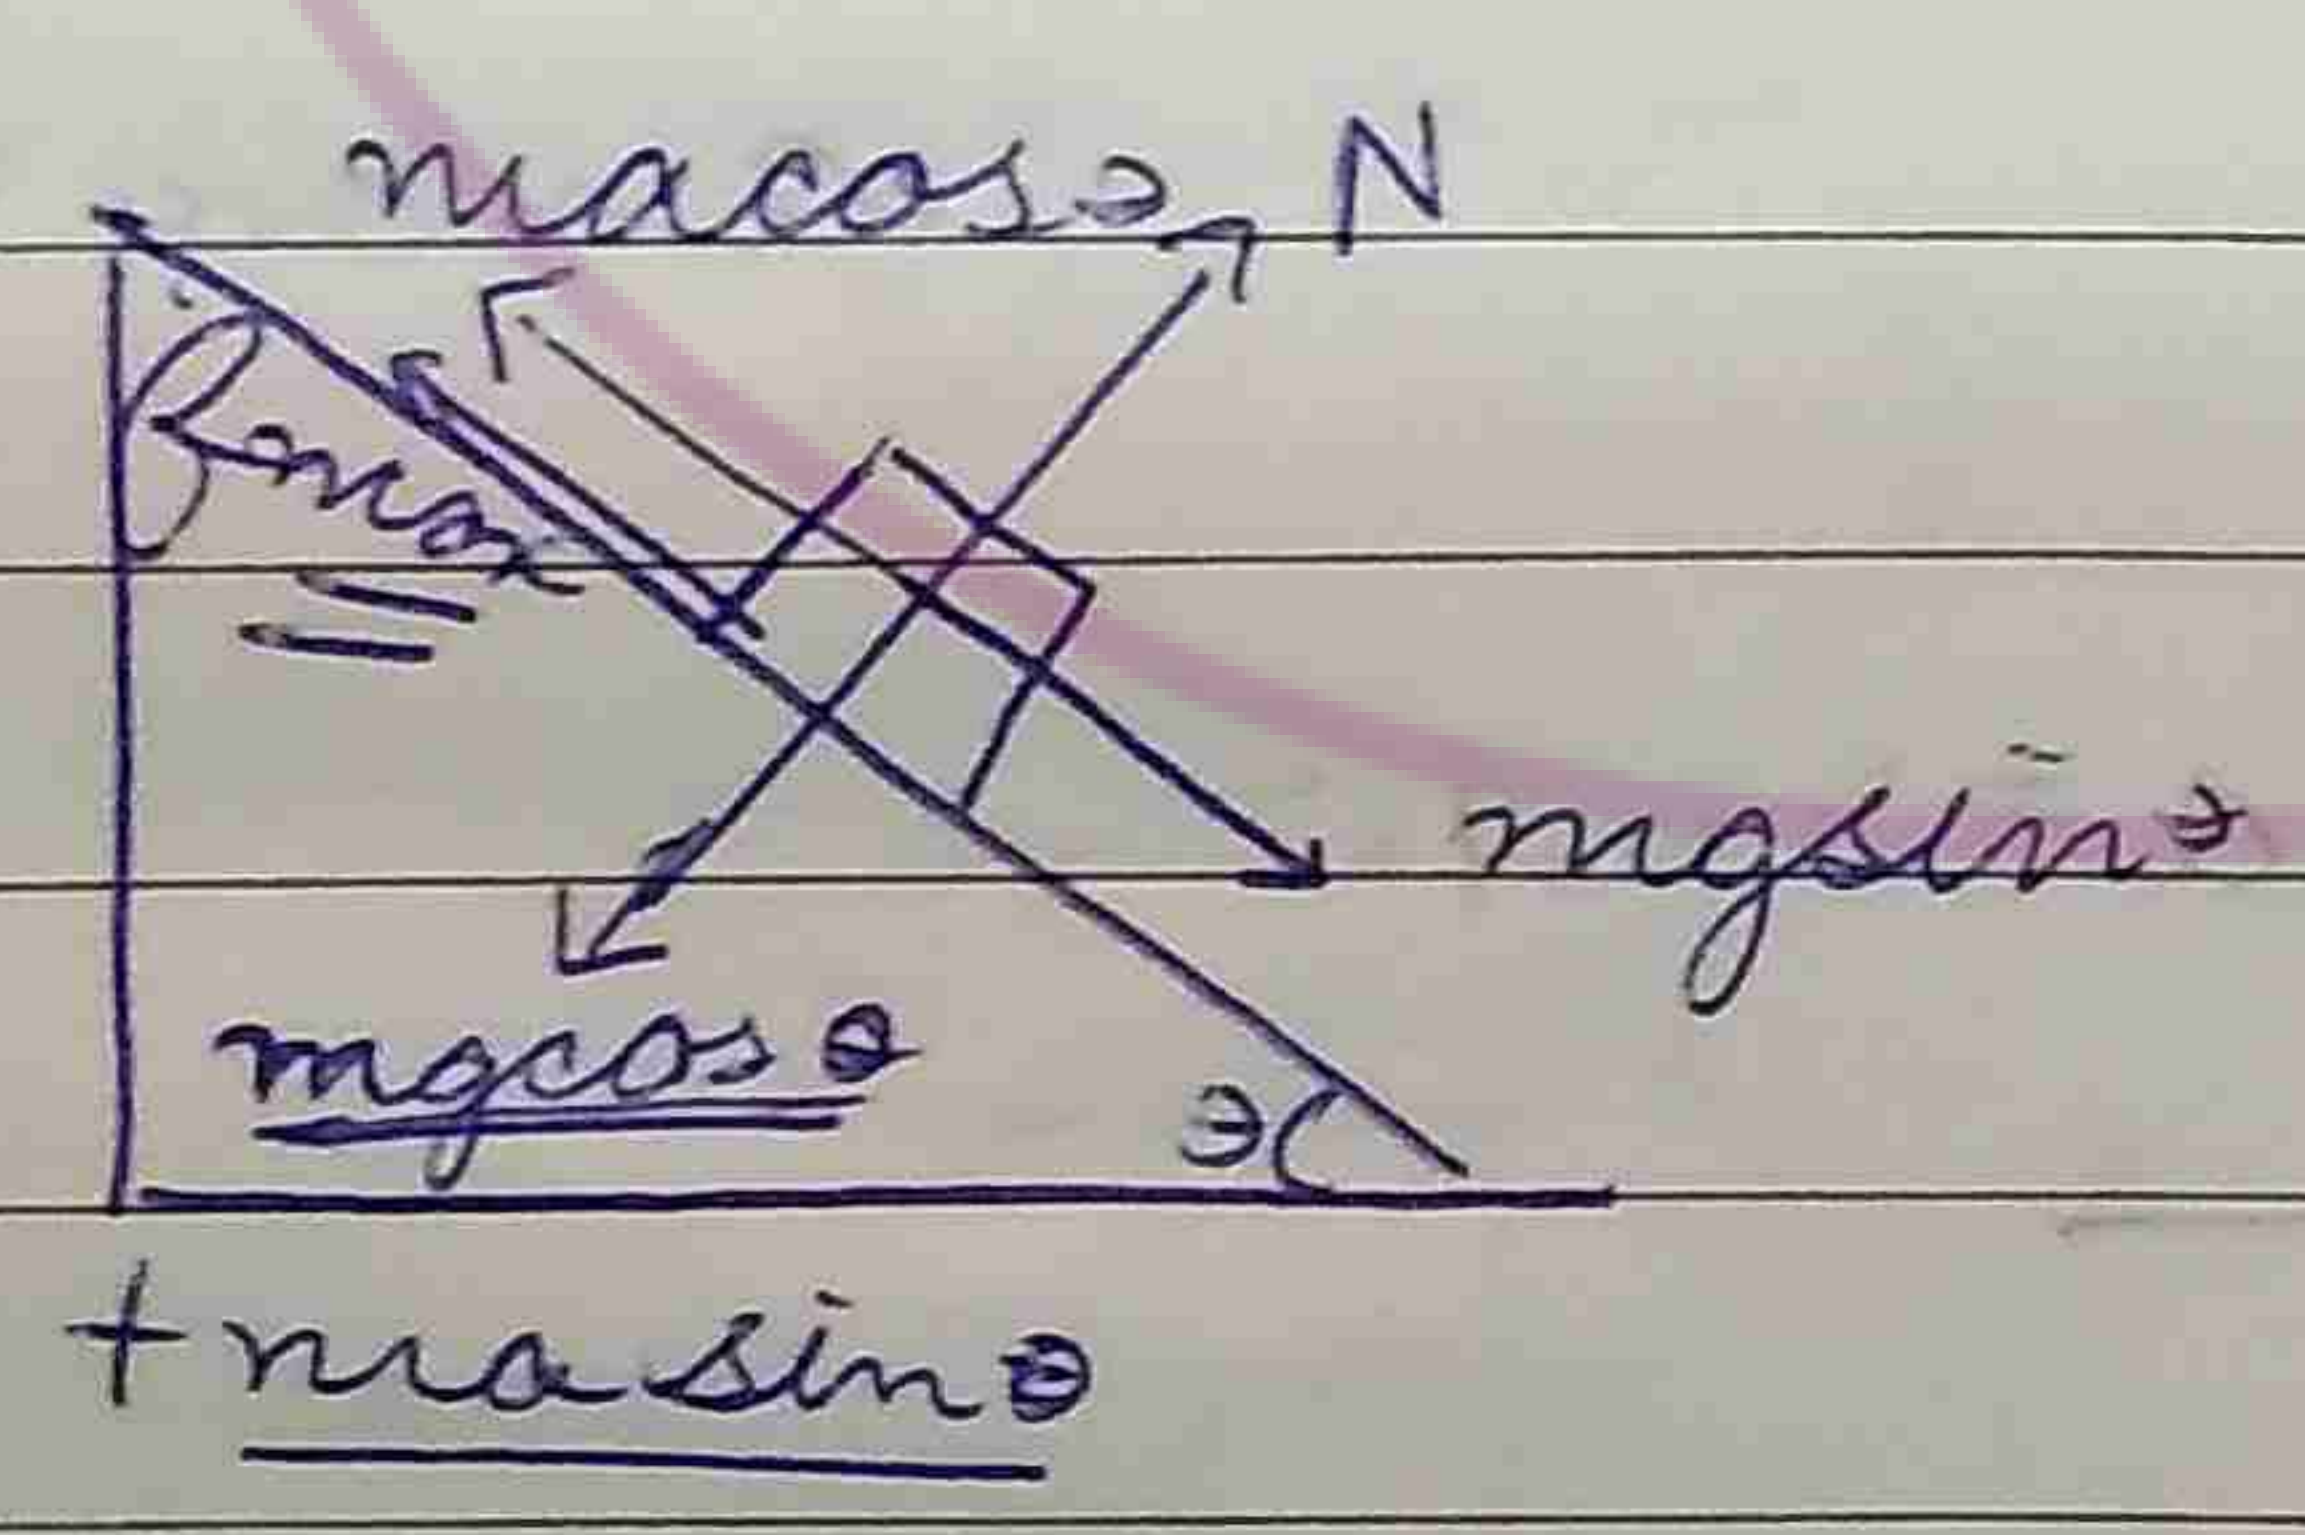 macosθ N
fmax
mgsinθ
mgcosθ
θ
+ masinθ